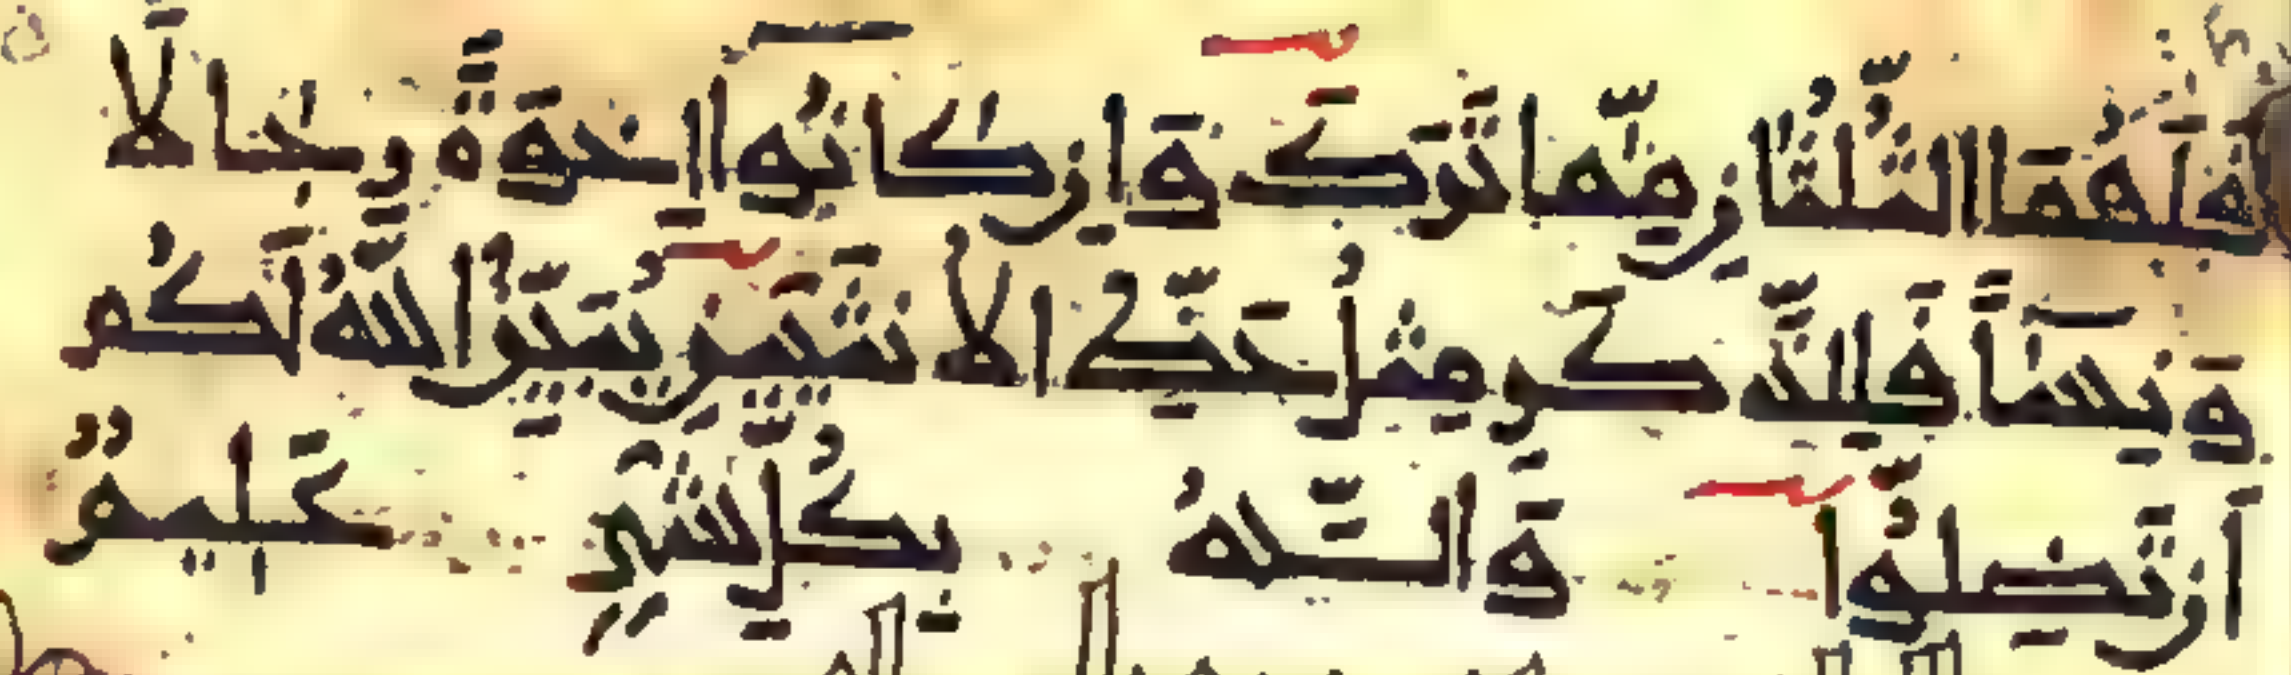 فَلَهُمَا الثُّلُثَانِ مِمَّا تَرَكَ وَإِن كَانُوا إِخْوَةً رِجَالًا
وَنِسَاءً فَلِلذَّكَرِ مِثْلُ حَظِّ الْأُنثَيَيْنِ يُبَيِّنُ اللَّهُ لَكُمْ
أَن تَضِلُّوا وَاللَّهُ بِكُلِّ شَيْءٍ عَلِيمٌ